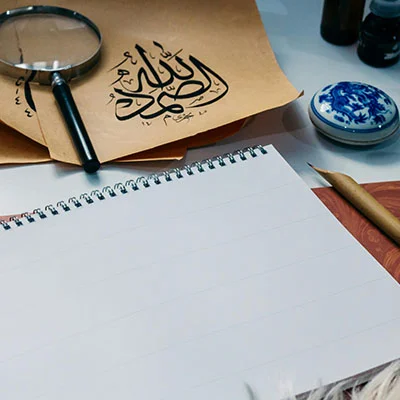 اللهُ الصَّمَدُ